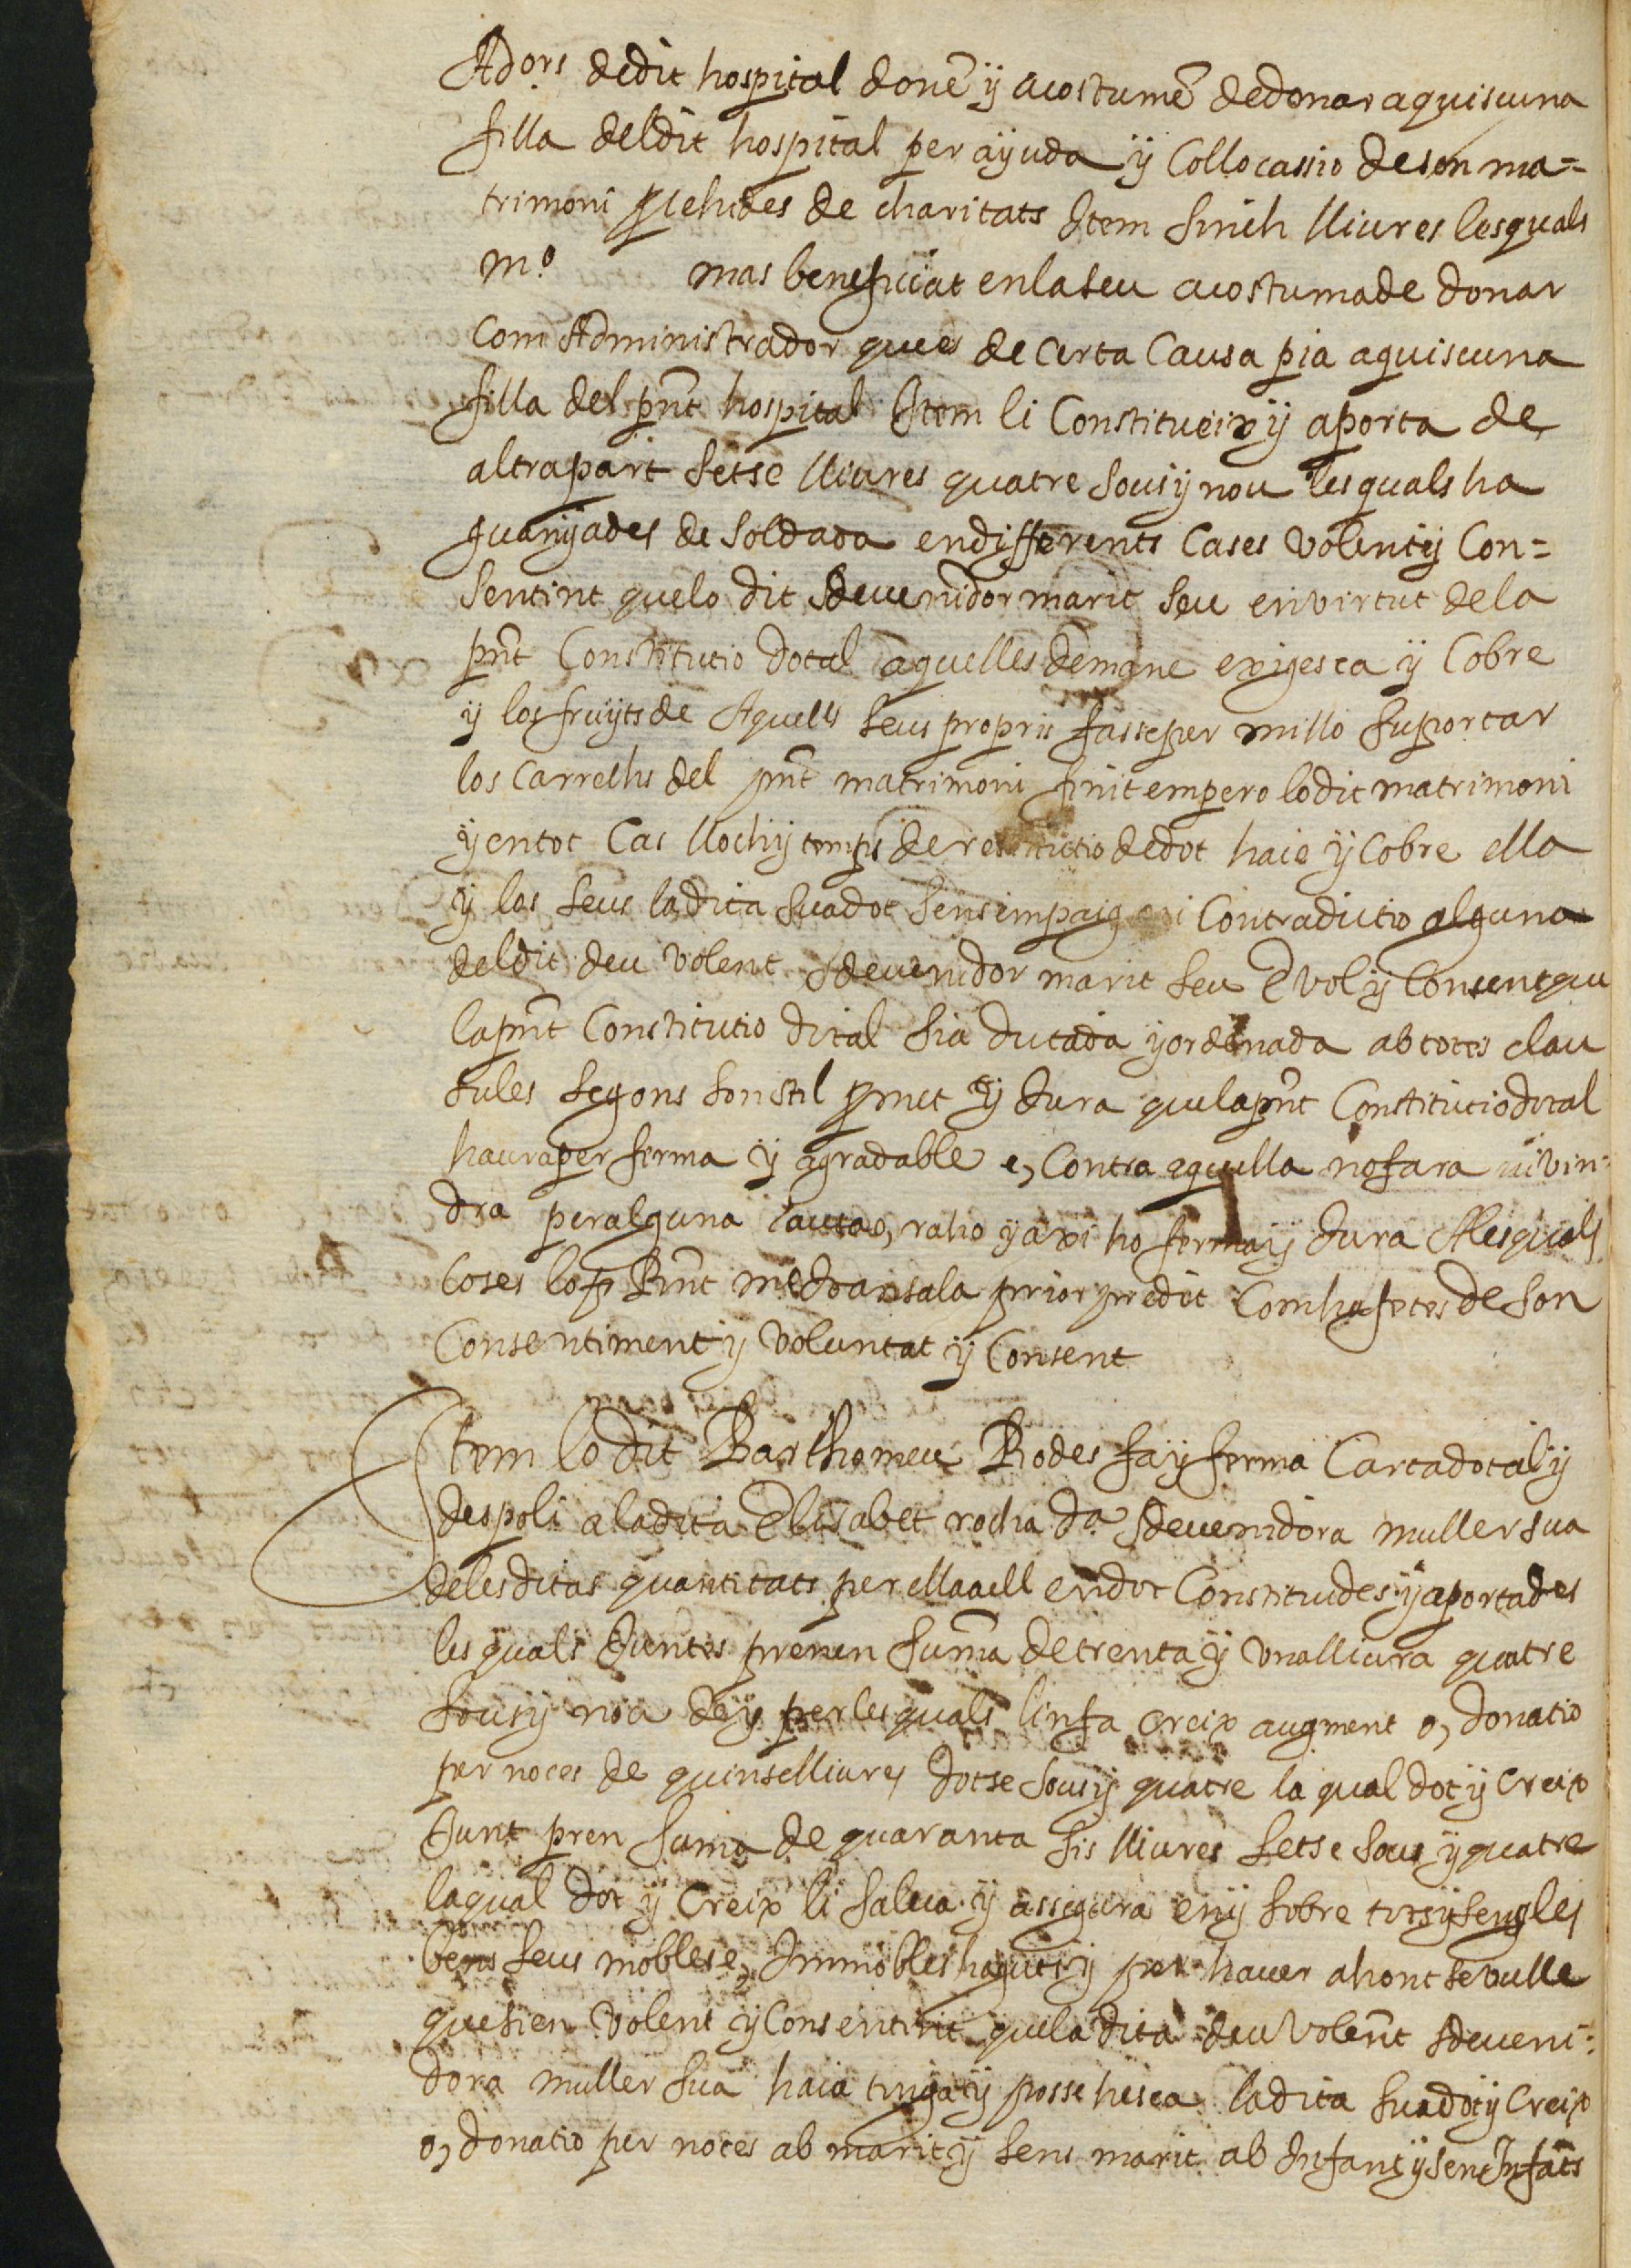 Ad.ors dedit hospital donē ÿ acostumē dedonar aquiscuna
filla deldit hospital per aÿuda ÿ Collocassio deson ma=
trimoni de charitats Item sinch lliures lesquals
m.o mas beneficiat enlaseu acostumade donar
Com Administrador quees de certa Causa pia aquiscuna
filla del pnt hospital Item li Constitueix ÿ aporta de
altrapart setse lliures quatre sousÿ nou les quals ha
guanÿades de soldada endifferents Cases volentÿ Con=
sentint quelo dit sdevenidor marit seu envirtut dela
pnt Constitutio dotal aquelles demane exigesca ÿ Cobre
ÿ los fruÿts de Aquells seus propris fasseper millo suportar
los Carrechs del pnt matrimoni finit empero lodit matrimoni
ÿ entot Cas llochÿ temps de restitutio dedot haie ÿ Cobre ella
ÿ los seus ladita suadot sens empaig ni Contradictio alguna
deldit deu volent sdevenidor marit seu E vol ÿ Consent que
lapnt Constitutio dotal sia dictada ÿ ordenada ab totes clau
sules segons son stil ÿ Jura quelapnt Constitutio dotal
hauraper ferma ÿ agradable e, Contra aquella nofara nivin=
dra peralguna causao, rahio ÿ axi ho fermaÿ Jura Alesquals
Coses lo prior predit Comha fetes de son
Consentiment ÿ voluntat ÿ Consent
Item lo dit Barthomeu Rodes faÿ ferma Cartadotal ÿ
despoli aladita Elisabet rocha da. sdevenidora muller sua
delesditas quantitats per ellaaell endot Constituides ÿ aportades
les quals Juntes prenen suma detrenta ÿ vnalliura quatre
sousÿ nou deÿ perlesquals linfa creix augment o, donatio
per noces de quinselliures dotse sousÿ quatre la qual dot ÿ Creix
Junt pren suma de quaranta sis lliures setse sous ÿ quatre
laqual dot ÿ Creix li salua ÿ assegura enÿ sobre totsÿ sengles
bens seus mobles e, Immobles hagutsÿ per hauer ahont sevulle
quesien volent ÿ Consentint quela dita deu volent sdeveni=
dora muller sua haia tingaÿ possehesca ladita suadotÿ Creix
o, donatio per noces ab maritÿ sens marit ab Infantsÿ sens Infāts